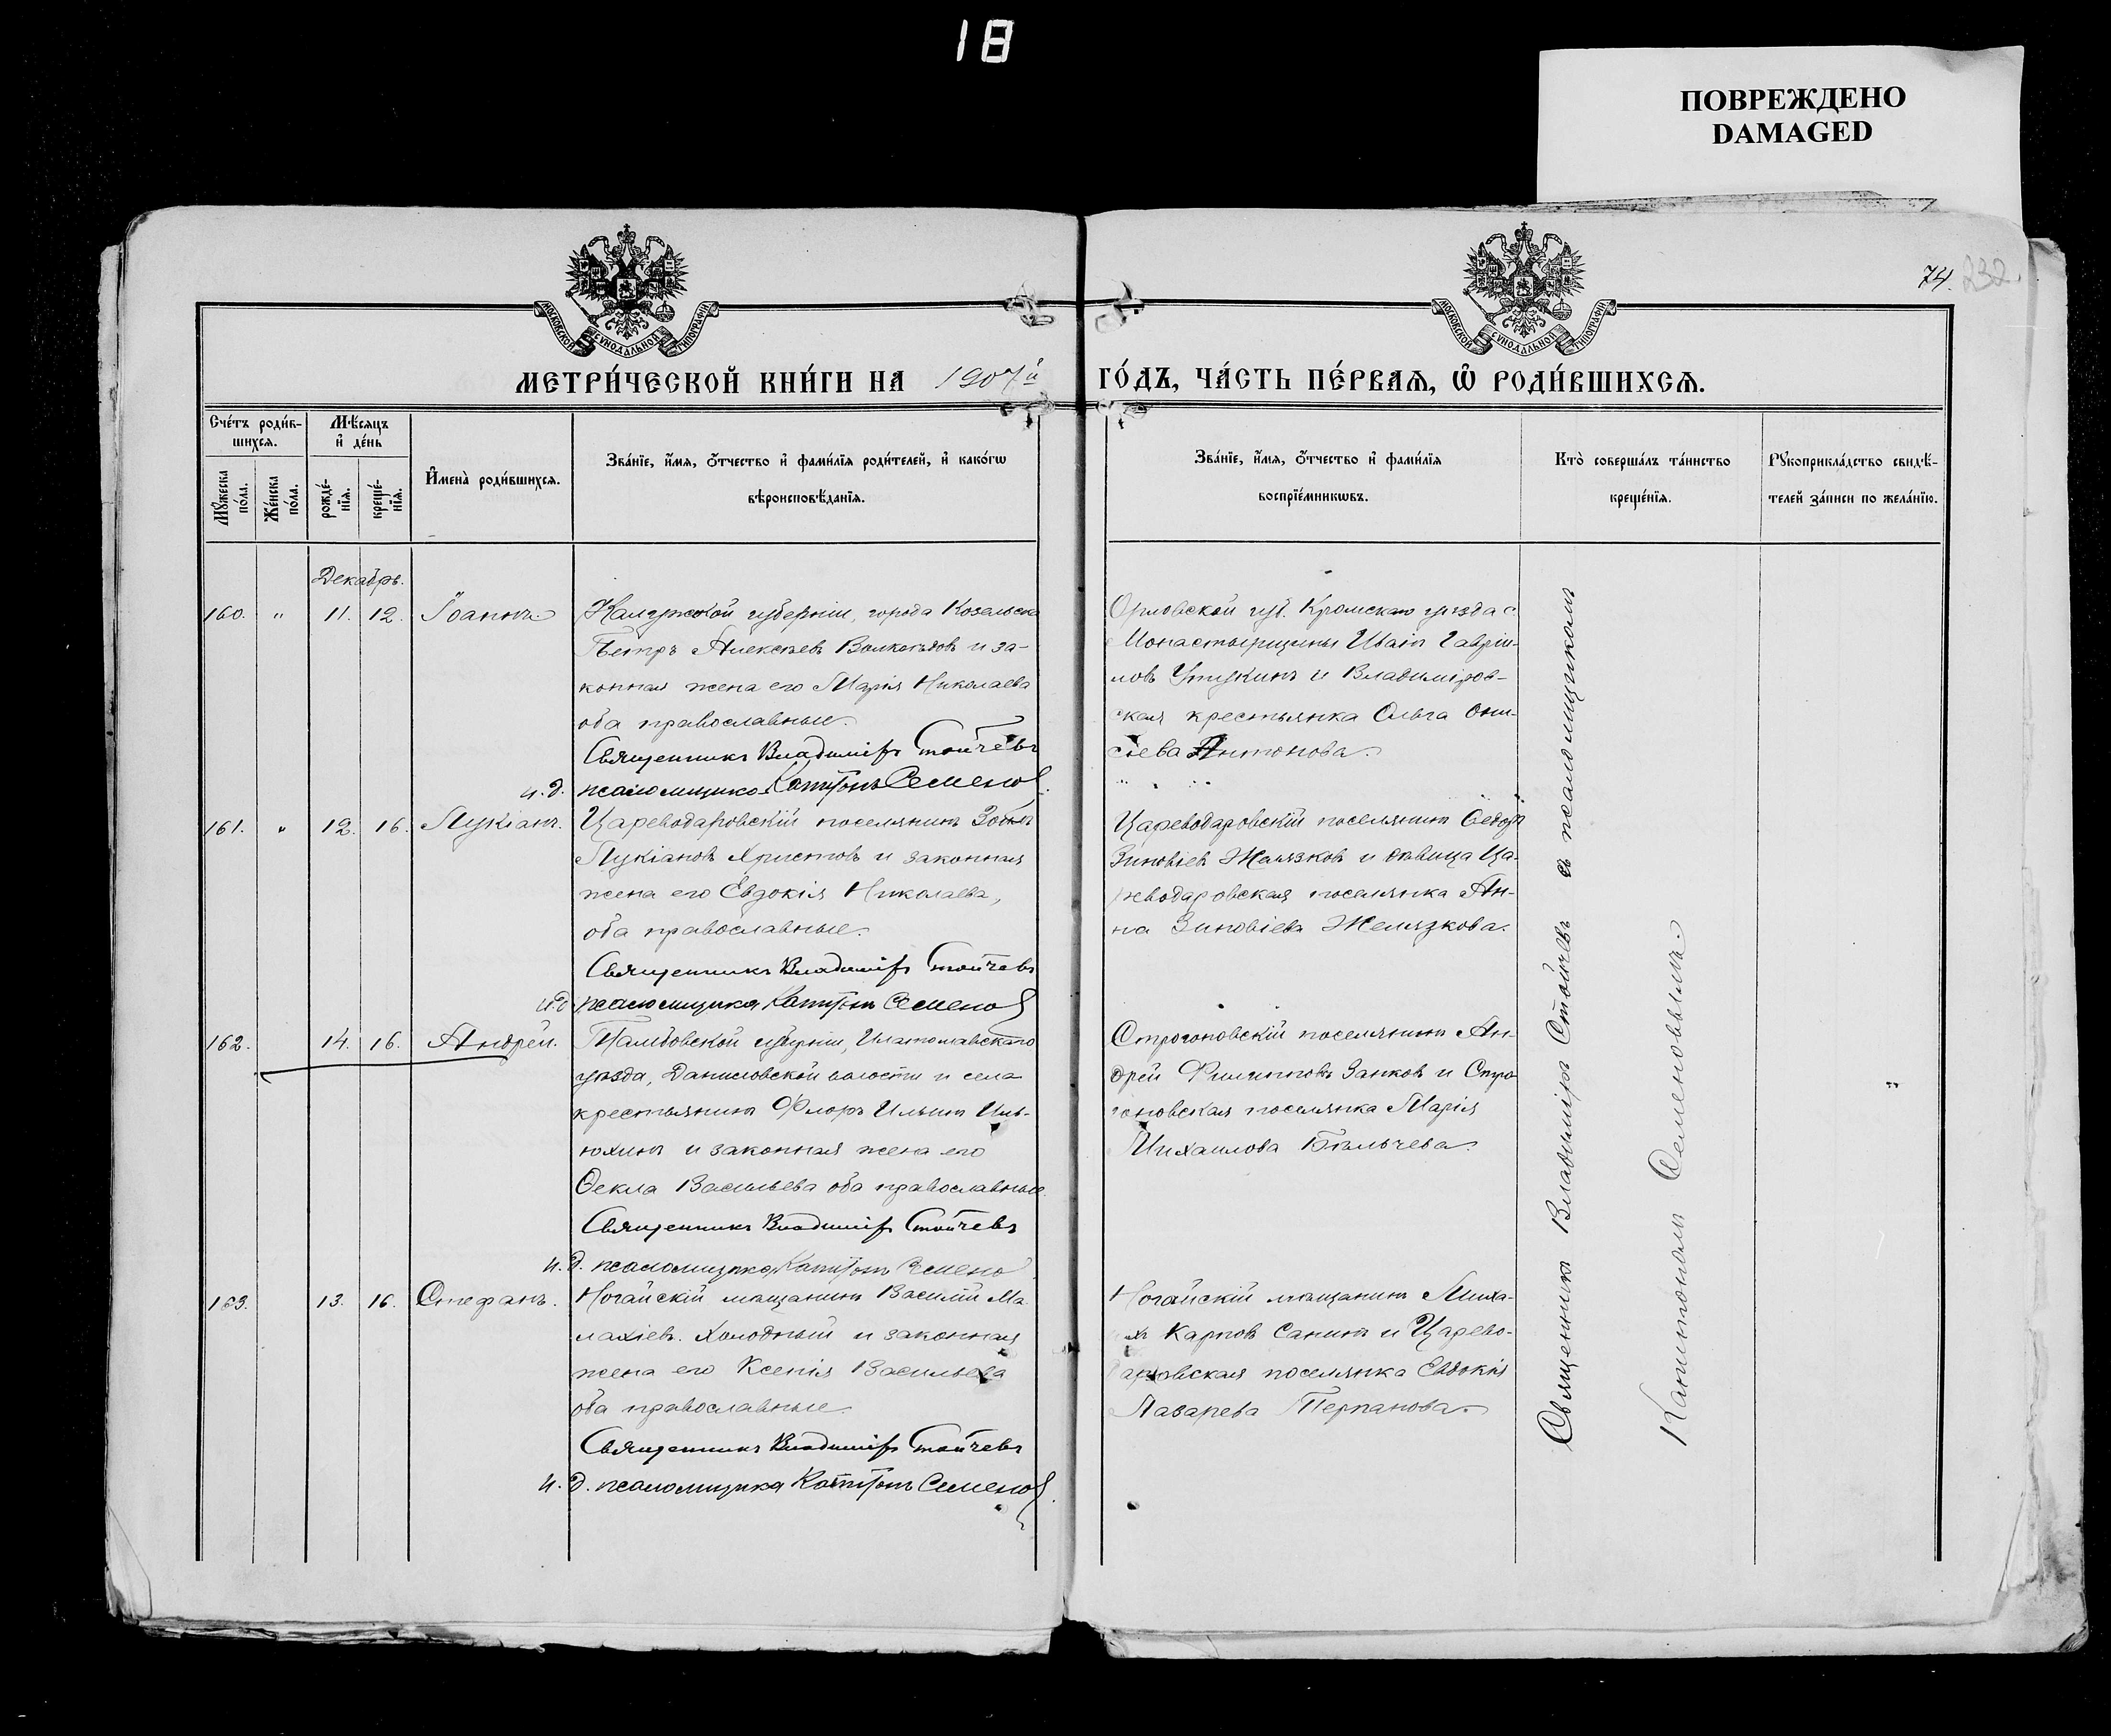 18
ПОВРЕЖДЕНО
DAMAGED
74.
232.
МОСКОВСКОЙ СУНОДАЛЬНОЙ ТИПОГРАФІИ
МОСКОВСКОЙ СУНОДАЛЬНОЙ ТИПОГРАФІИ
МЕТРИ́ЧЕСКОЙ КНИ́ГИ НА 1907й ГО́ДЪ, ЧА́СТЬ ПЕ́РВАѦ, Ѡ РОДИ́ВШИХСѦ.
Сче́тъ роди́в-
шихсѧ.
Мꙋ́жеска
по́ла.
Же́нска
по́ла.
Мѣ́сѧцъ
и҆ де́нь
рожде́-
нїѧ.
креще́-
нїѧ.
И҆мена̀ роди́вшихсѧ.
Зва́нїе, и҆́мѧ, ѻ҆́тчество и҆ фами́лїѧ роди́телей, и҆ како́гѡ
вѣроисповѣ́данїѧ.
Зва́нїе, и҆́мѧ, ѻ҆́тчество и҆ фами́лїѧ
воспрїе́мникѡвъ.
Кто̀ соверша́лъ та́инство
креще́нїѧ.
Рꙋкоприкла́дство свидѣ́-
телей за́писи по жела́нїю.
Декабрь.
160. " 11. 12. Іоаннъ.
Калужской губерніи, города Козельска
Петръ Алексѣевъ и за-
конная жена его Марія Николаева
оба православные.
Священникъ Владиміръ Стойчевъ
и. д. псаломщика Капитонъ Семенов
Орловской губ. Кромскаго уѣзда с.
Монастырщины Иванъ Гаврiи-
ловъ и Владиміров-
ская крестьянка Ольга Они-
сіева Антонова.
161. " 12. 16. Лукіанъ.
Цареводаровскій поселянинъ
Лукіановъ Христовъ и законная
жена его Евдокія Николаева,
оба православные.
Священникъ Владиміръ Стойчевъ
и.д. псаломщика Капитонъ Семенов
Цареводаровскій поселянинъ Ѳедоръ
Зиновіевъ Желязковъ и дѣвица Ца-
реводаровская поселянка Ан-
на Зиновіева Желязкова.
162. 14. 16. Андрей.
Тамбовской губерніи,
уѣзда, Даниловской волости и села
крестьянинъ Флоръ Ильинъ Иль-
юхинъ и законная жена его
Ѳекла Васильева оба православные.
Священникъ Владиміръ Стойчевъ
и. д. псаломщика Капитонъ Семенов
Строгоновскій поселянинъ Ан-
дрей Филипповъ Занковъ и Стро-
гоновская поселянка Марія
Михаилова Бѣльчева.
163. 13. 16. Стефанъ.
Ногайскій мѣщанинъ Василій Ма-
лахіевъ Холодный и законная
жена его Ксенія Васильева
оба православные
Священникъ Владиміръ Стойчевъ
и. д. псаломщика Капитонъ Семенов
Ногайскій мѣщанинъ Миха-
лъ Карповъ Санинъ и Царево-
даровская поселянка Евдокія
Лазарева Терпанова.
Священникъ Владиміръ Стойчевъ съ псаломщикомъ
Капитономъ Семеновымъ.